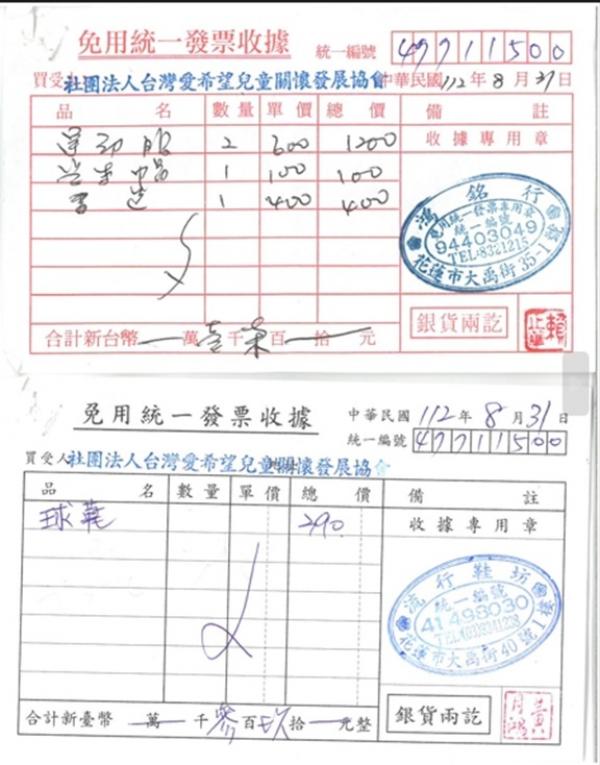 免用統一發票收據 統一編號 47711500
買受 社團法人台灣愛希望兒童關懷發展協會 中華民國112年8月31日
品名 數量 單價 總價 備註
運動服 2 600 1200 收據專用章
1 100 100
1 400 400
鴻銘行
免用統一發票專用章
統一編號
94403049
TEL:8321215
花蓮市大禹街35-1號
銀貨兩訖
合計新台幣 萬壹千柒百 拾 元
免用統一發票收據 中華民國112年8月31日
統一編號 47711500
買受人 社團法人台灣愛希望兒童關懷發展協會
品名 數量 單價 總價 備註
球鞋 390 收據專用章
流行鞋坊
統一編號
41498030
花蓮市大禹街40號1樓
合計新臺幣 萬 千參百玖拾 元整 銀貨兩訖